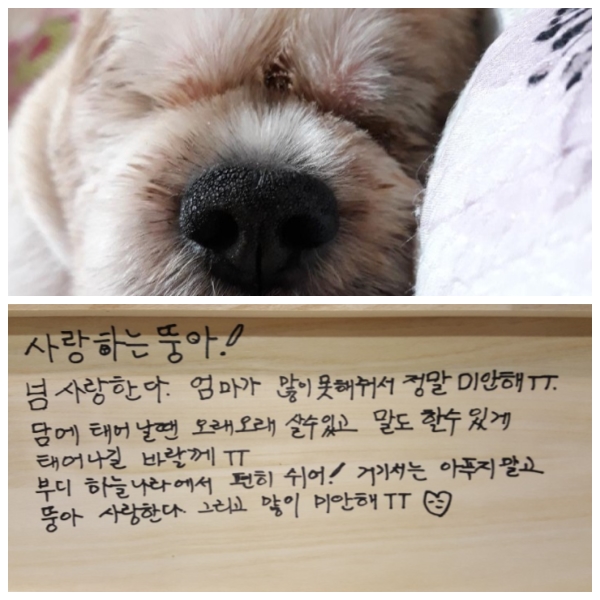 사랑하는 뚱아!
넘 사랑한다. 엄마가 많이 못해줘서 정말 미안해 TT.
담에 태어날땐 오래오래 살수있고 말도 할수 있게
태어나길 바랄께 TT
부디 하늘나라에서 편히 쉬어! 거기서는 아푸지말고
뚱아 사랑한다 그리고 많이 미안해 TT